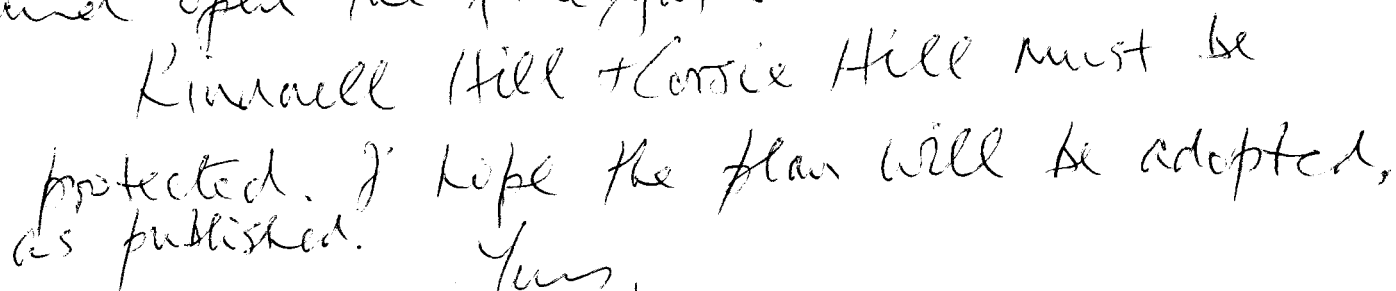 and open the
Kinnoull Hill + Corsie Hill must be
protected. I hope the plan will be adopted,
as published.
Yours,